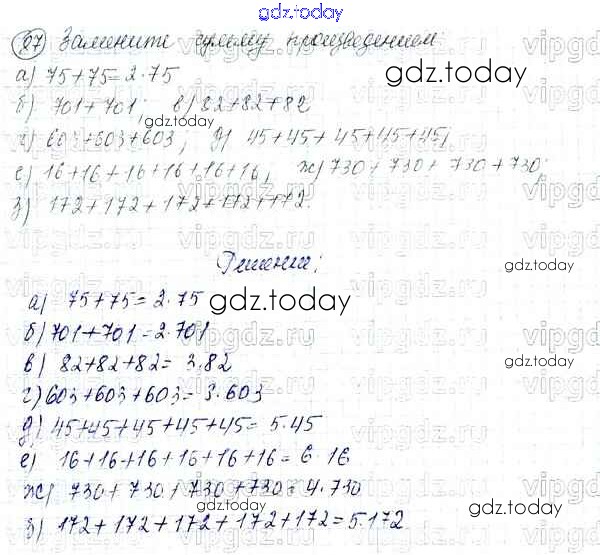 gdz.today
27 Замените сумму произведением
а) 75+75=2·75
gdz.today
б) 701+701; в) 82+82+82
gdz.today
г) 603+603+603; д) 45+45+45+45+45;
е) 16+16+16+16+16+16; ж) 730+730+730+730;
з) 172+172+172+172+172.
vipgdz.ru
Решение:
gdz.today
а) 75+75=2·75
gdz.today
б) 701+701=2·701
gdz.today
в) 82+82+82=3·82
г) 603+603+603=3·603
gdz.today
д) 45+45+45+45+45=5·45
gdz.today
е) 16+16+16+16+16+16=6·16
ж) 730+730+730+730=4·730
gdz.today
з) 172+172+172+172+172=5·172
gdz.today